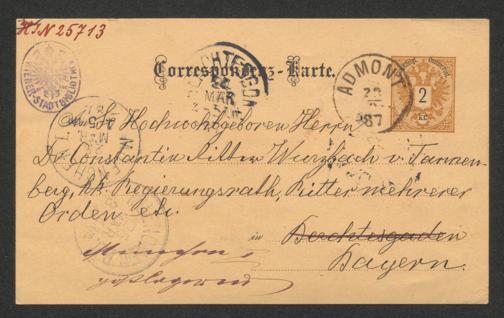 HIN 25713
WIENER STADTBIBLIOTHEK
Correspondenz-Karte.
BERCHTESGADEN
MÄR
ADMONT
87
2
kr.
Sr Hochwohlgeboren Herrn
Dr Constantin Ritter Wurzbach v. Tannen-
berg, kk Regierungsrath, Ritter mehrerer
Orden etc.
in Berchtesgaden
Bayern.